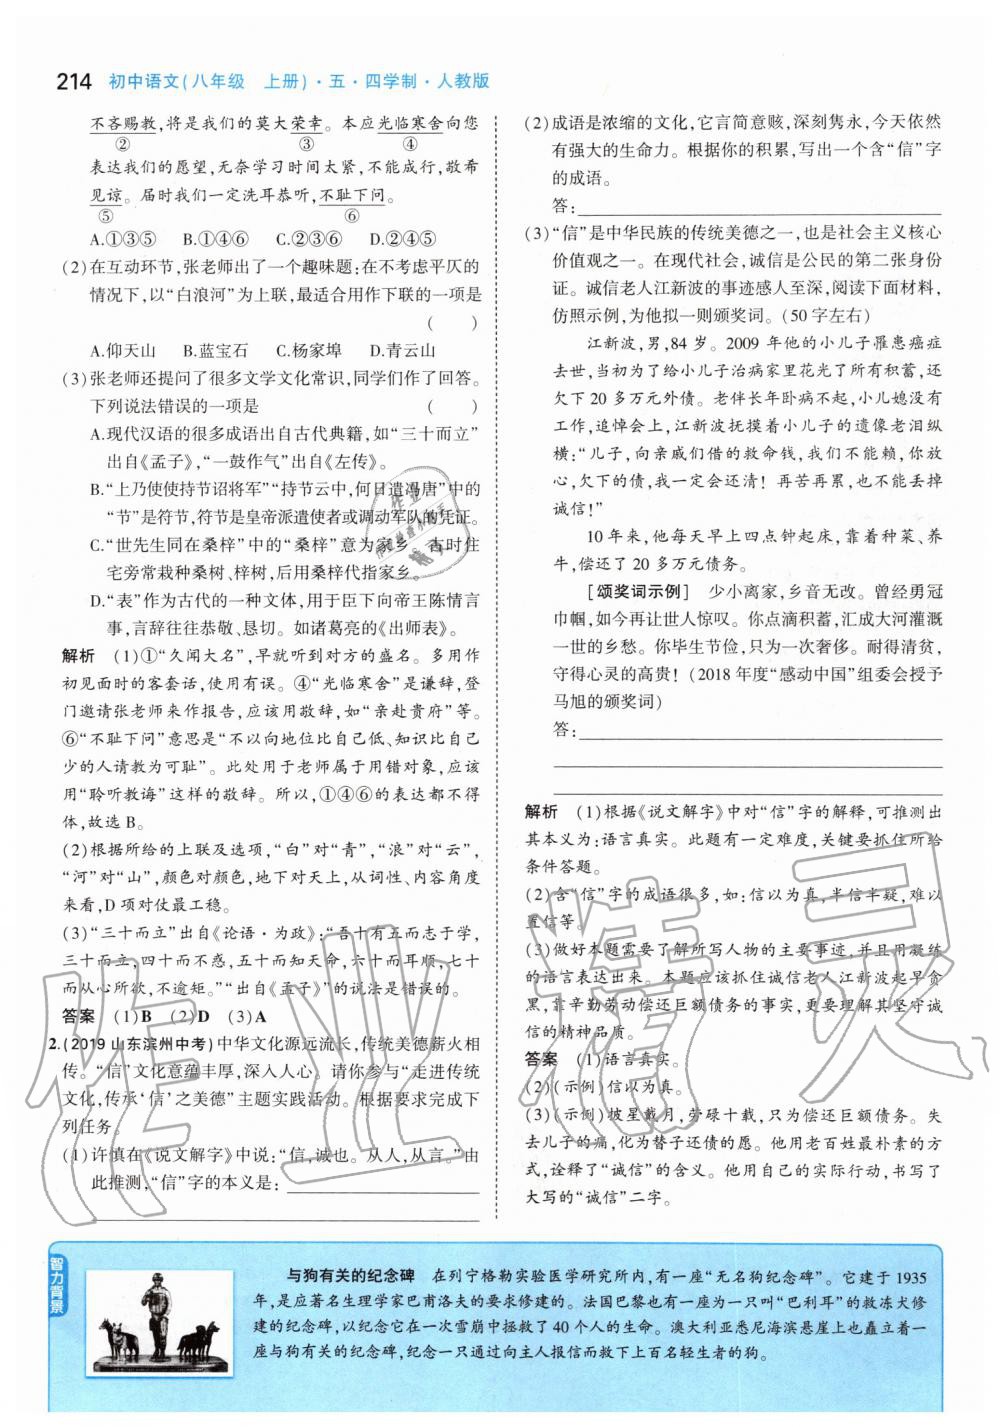 214 初中语文(八年级 上册)·五·四学制·人教版
不吝赐教,将是我们的莫大荣幸。本应光临寒舍向您
② ③ ④
表达我们的愿望,无奈学习时间太紧,不能成行,敬希
见谅。届时我们一定洗耳恭听,不耻下问。
⑤ ⑥
A.①③⑤ B.①④⑥ C.②③⑥ D.②④⑤
(2)在互动环节,张老师出了一个趣味题:在不考虑平仄的
情况下,以“白浪河”为上联,最适合用作下联的一项是
( )
A.仰天山 B.蓝宝石 C.杨家埠 D.青云山
(3)张老师还提问了很多文学文化常识,同学们作了回答。
下列说法错误的一项是 ( )
A.现代汉语的很多成语出自古代典籍,如“三十而立”
出自《孟子》,“一鼓作气”出自《左传》。
B.“上乃使使持节诏将军”“持节云中,何日遣冯唐”中的
“节”是符节,符节是皇帝派遣使者或调动军队的凭证。
C.“世先生同在桑梓”中的“桑梓”意为家乡。古时住
宅旁常栽种桑树、梓树,后用桑梓代指家乡。
D.“表”作为古代的一种文体,用于臣下向帝王陈情言
事,言辞往往恭敬、恳切。如诸葛亮的《出师表》。
解析 (1)①“久闻大名”,早就听到对方的盛名。多用作
初见面时的客套话,使用有误。④“光临寒舍”是谦辞,登
门邀请张老师来作报告,应该用敬辞,如“亲赴贵府”等。
⑥“不耻下问”意思是“不以向地位比自己低、知识比自己
少的人请教为可耻”。此处用于老师属于用错对象,应该
用“聆听教诲”这样的敬辞。所以,①④⑥的表达都不得
体,故选B。
(2)根据所给的上联及选项,“白”对“青”,“浪”对“云”,
“河”对“山”,颜色对颜色,地下对天上,从词性、内容角度
来看,D项对仗最工稳。
(3)“三十而立”出自《论语·为政》:“吾十有五而志于学,
三十而立,四十而不惑,五十而知天命,六十而耳顺,七十
而从心所欲,不逾矩。”“出自《孟子》”的说法是错误的。
答案 (1)B (2)D (3)A
2.(2019山东滨州中考)中华文化源远流长,传统美德薪火相
传。“信”文化意蕴丰厚,深入人心。请你参与“走进传统
文化,传承‘信’之美德”主题实践活动。根据要求完成下
列任务。
(1)许慎在《说文解字》中说:“信,诚也。从人,从言。”由
此推测,“信”字的本义是:
(2)成语是浓缩的文化,它言简意赅,深刻隽永,今天依然
有强大的生命力。根据你的积累,写出一个含“信”字
的成语。
答:
(3)“信”是中华民族的传统美德之一,也是社会主义核心
价值观之一。在现代社会,诚信是公民的第二张身份
证。诚信老人江新波的事迹感人至深,阅读下面材料,
仿照示例,为他拟一则颁奖词。(50字左右)
江新波,男,84岁。2009年他的小儿子罹患癌症
去世,当初为了给小儿子治病家里花光了所有积蓄,还
欠下20多万元外债。老伴长年卧病不起,小儿媳没有
工作,追悼会上,江新波抚摸着小儿子的遗像老泪纵
横:“儿子,向亲戚们借的救命钱,我们不能赖,你放
心,欠下的债,我一定会还清!再苦再累,也不能丢掉
诚信!”
10年来,他每天早上四点钟起床,靠着种菜、养
牛,偿还了20多万元债务。
[颁奖词示例] 少小离家,乡音无改。曾经勇冠
巾帼,如今再让世人惊叹。你点滴积蓄,汇成大河灌溉
一世的乡愁。你毕生节俭,只为一次奢侈。耐得清贫,
守得心灵的高贵!(2018年度“感动中国”组委会授予
马旭的颁奖词)
答:
解析 (1)根据《说文解字》中对“信”字的解释,可推测出
其本义为:语言真实。此题有一定难度,关键要抓住所给
条件答题。
(2)含“信”字的成语很多,如:信以为真,半信半疑,难以
置信等。
(3)做好本题需要了解所写人物的主要事迹,并且用凝练
的语言表达出来。本题应该抓住诚信老人江新波起早贪
黑,靠辛勤劳动偿还巨额债务的事实,更要理解其坚守诚
信的精神品质。
答案 (1)语言真实。
(2)(示例)信以为真。
(3)(示例)披星戴月,劳碌十载,只为偿还巨额债务。失
去儿子的痛,化为替子还债的愿。他用老百姓最朴素的方
式,诠释了“诚信”的含义。他用自己的实际行动,书写了
大写的“诚信”二字。
智力背景
与狗有关的纪念碑 在列宁格勒实验医学研究所内,有一座“无名狗纪念碑”。它建于1935
年,是应著名生理学家巴甫洛夫的要求修建的。法国巴黎也有一座为一只叫“巴利耳”的救冻犬修
建的纪念碑,以纪念它在一次雪崩中拯救了40个人的生命。澳大利亚悉尼海滨悬崖上也矗立着一
座与狗有关的纪念碑,纪念一只通过向主人报信而救下上百名轻生者的狗。
作业精灵